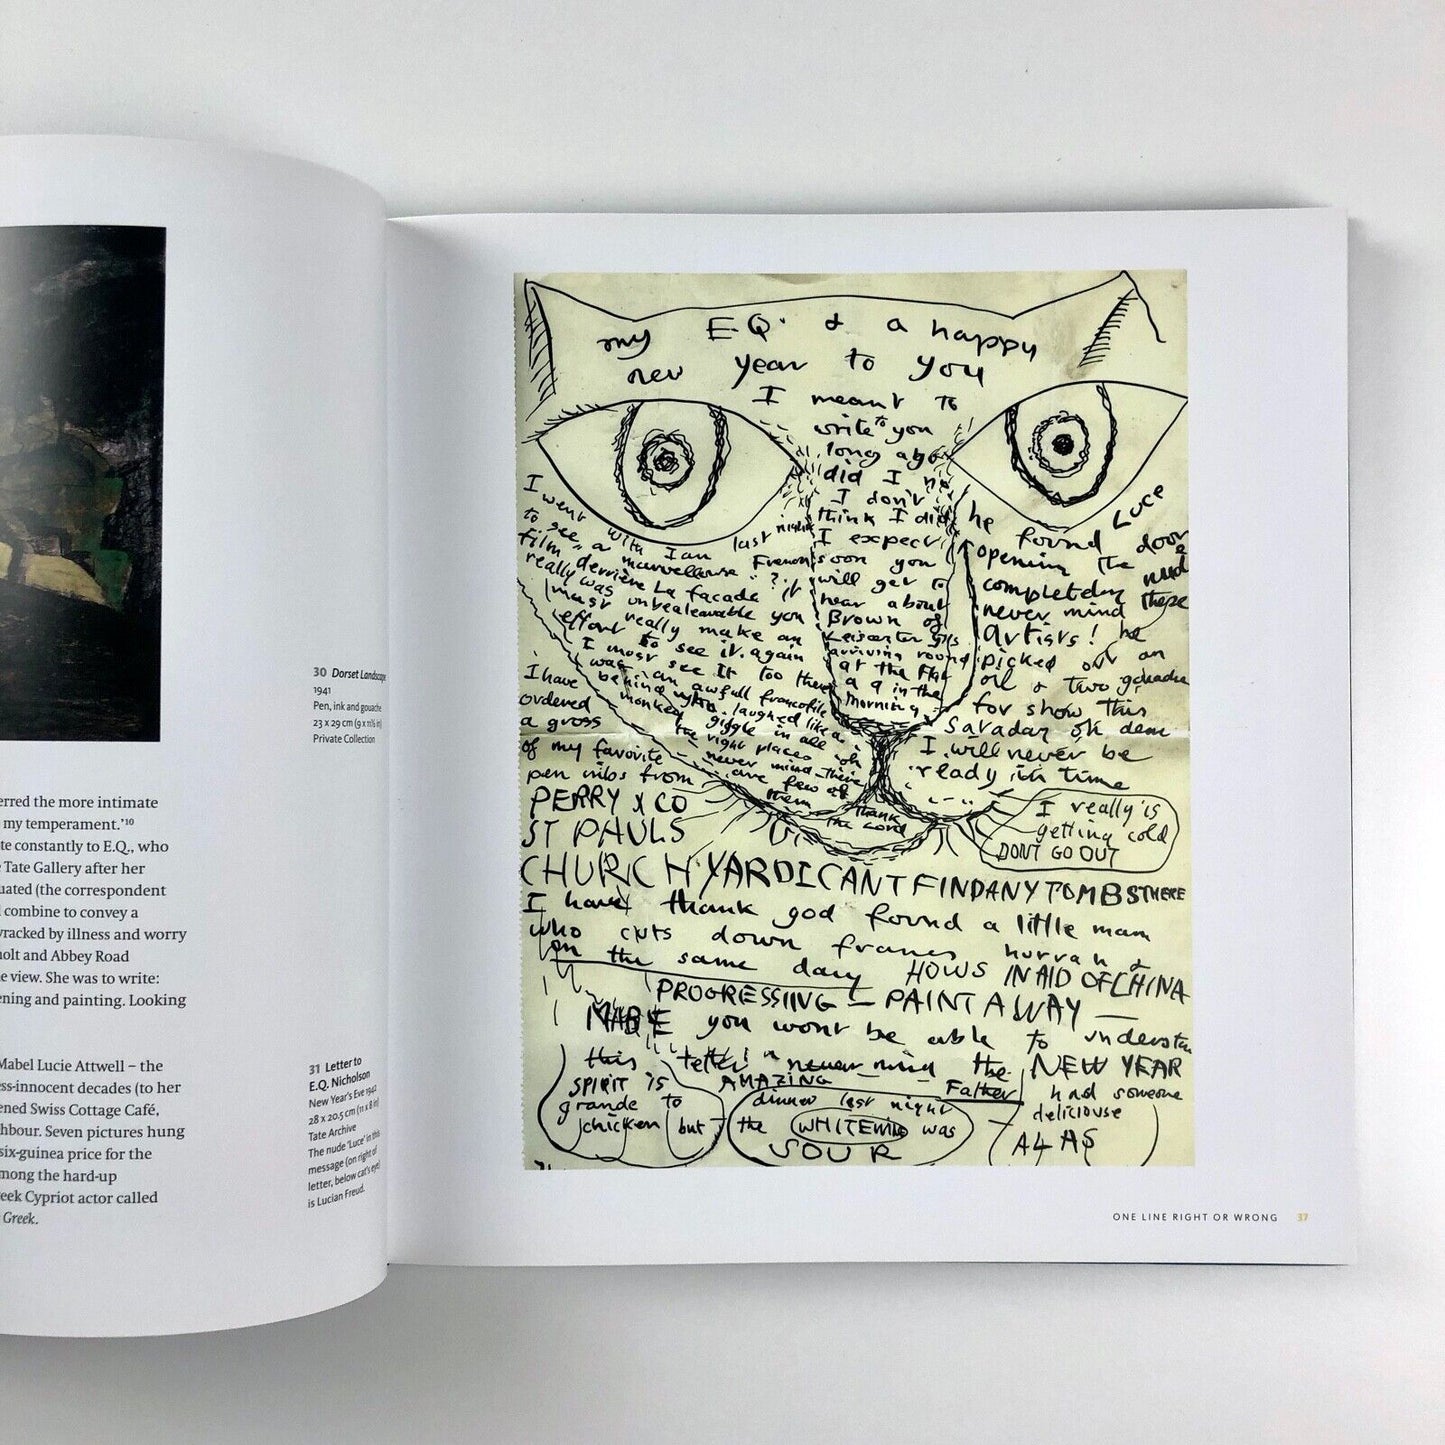 30 Dorset Landscape
1941
Pen, ink and gouache
23 x 29 cm (9 x 11½ in)
Private Collection
erred the more intimate
my temperament.'¹⁰
te constantly to E.Q., who
e Tate Gallery after her
uated (the correspondent
combine to convey a
wracked by illness and worry
holt and Abbey Road
e view. She was to write:
ening and painting. Looking
Mabel Lucie Attwell – the
ess-innocent decades (to her
ened Swiss Cottage Café,
hbour. Seven pictures hung
six-guinea price for the
mong the hard-up
eek Cypriot actor called
Greek.
31 Letter to
E.Q. Nicholson
New Year's Eve 1942
28 x 20.5 cm (11 x 8 in)
Tate Archive
The nude 'Luce' in this
message (on right of
letter, below cat's eye)
is Lucian Freud.
my E.Q. & a happy
new year to you
I meant to
write to you
long ago
did I no
I don't
think I did
I expect
soon you
will get to
hear about
Brown of
Leicester Gls
arriving round
at the flat
a 9 in the
morning
I went with Ian last night
to see a marvellouse French
film derrière La facade ? it
really was unbealeavable you
must really make an
effort to see it. again
I most see it too there
was an awfull francofile
behind who laughed like a
monkey giggle in all
the right places oh
never mind there
are few of
them thank
the Lord
he found Luce
opening the door
completeley nud
never mind these
artists! he
picked out an
oil & two gouache
for show this
Saraday oh dear
I will never be
ready in time
I have
ordered
a gross
of my favorite
pen nibs from
PERRY & CO
ST PAULS
I really is
getting cold
DONT GO OUT
CHURCHYARD I CANT FIND ANY TOMBS THERE
I have thank god found a little mam
who cuts down frames hurrah &
on the same day HOWS IN AID OF CHINA
PROGRESSIING — PAINT AWAY —
you wont be able to understan
this letter never mind the NEW YEAR
SPIRIT IS
grande to
chicken but
AMAZING
dinner last night
the WHITEWINE was
SOUR
Father had someone
deliciouse
ALAS
ONE LINE RIGHT OR WRONG 37